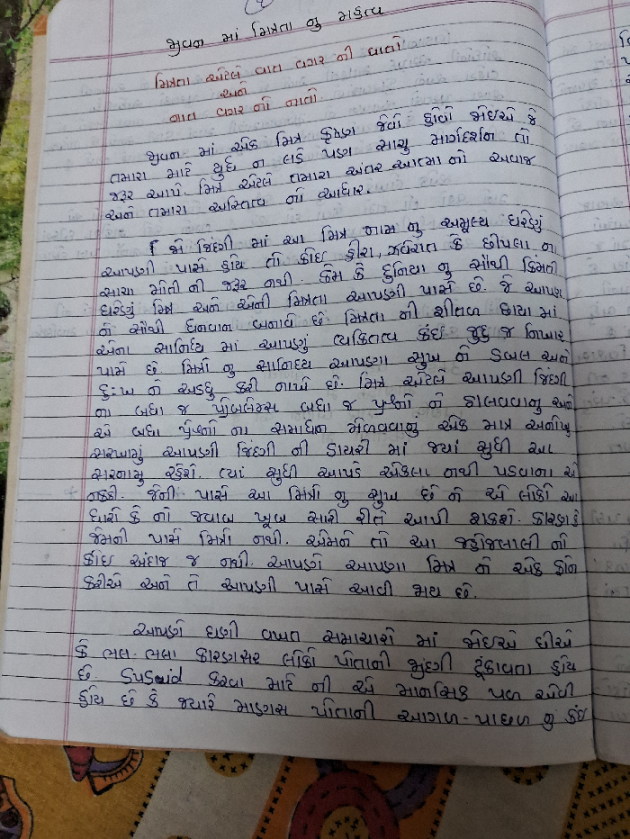 જીવન માં મિત્રતા નુ મહત્વ
મિત્રતા એટલે વાત વગર ની વાતો
અને
નાત વગર નો નાતો
જીવન માં એક મિત્ર કૃષ્ણ જેવો હોવો જોઇએ જે
તમારા માટે યુધ્ધ ન લડે પણ સાચુ માર્ગદર્શન તો
જરૂર આપે. મિત્ર એટલે તમારા અંતર આત્મા નો અવાજ
અને તમારા અસ્તિત્વ નો આધાર.
જો જિંદગી માં આ મિત્ર નામ નુ અમૂલ્ય ઘરેણું
આપણી પાસે હોય તો કોઇ હીરા, ઝવેરાત કે છીપલા ના
સાચા મોતી ની જરૂર નથી. કેમ કે દુનિયા નુ સૌથી કિંમતી
ઘરેણું મિત્ર અને એની મિત્રતા આપણી પાસે છે. જે આપણ
ને સૌથી ધનવાન બનાવે છે. મિત્રતા ની શીતલ છાયા માં
એના સાનિધ્ય માં આપણું વ્યક્તિત્વ કંઇક જુદુ જ નિખાર
પામે છે. મિત્રો નુ સાનિધ્ય આપણા સુખ ને ડબલ અને
દુઃખ ને અડધુ કરી નાખે છે. મિત્ર એટલે આપણી જિંદગી
ના બધા જ પ્રોબલેમ્સ બધા જ પ્રશ્નો ને ઠાલવવાનુ અને
એ બધા પ્રશ્નો ના સમાધાન મેળવવાનું એક માત્ર અનોખુ
સરનામું આપણી જિંદગી ની ડાયરી માં જ્યાં સુધી આ
સરનામુ રહેશે. ત્યાં સુધી આપણે એકલા નથી પડવાના એ
નક્કી. જેની પાસે આ મિત્રો નુ સુખ છે ને એ લોકો આ
ધારો કે નો જવાબ ખૂબ સારી રીતે આપી શકશે. કારણકે
જેમની પાસે મિત્રો નથી. એમને તો આ જાહોજલાલી નો
કોઇ અંદાજ જ નથી. આપણે આપણા મિત્ર ને એક ફોન
કરીએ અને તે આપણી પાસે આવી જાય છે.
આપણે ઘણી વખત સમાચારો માં જોઇએ છીએ
કે ભલ-ભલા કારણસર લોકો પોતાની જીંદગી ટૂંકાવતા હોય
છે. Susaid કરવા માટે ની એ માનસિક પળ એવી
હોય છે કે જ્યારે માણસ પોતાની આગળ-પાછળ નું કંઇ